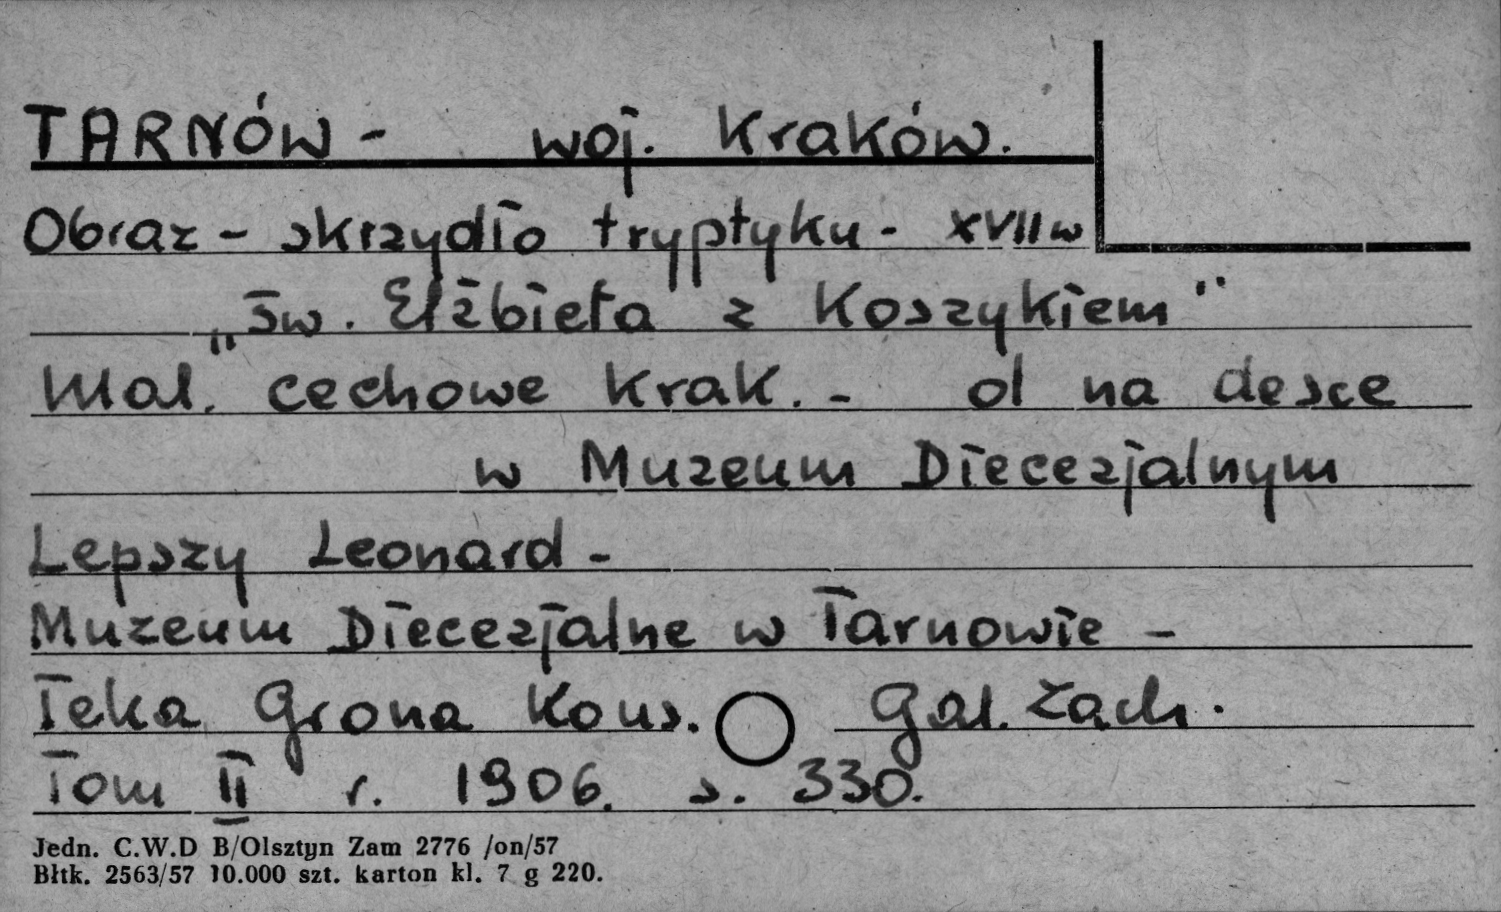 TARNÓW - woj. Kraków.
Obraz - skrzydło tryptyku - XVII w
„Św. Elżbieta z Koszykiem"
Mal. cechowe krak. - ol na desce
w Muzeum Diecezjalnym
Lepszy Leonard -
Muzeum Diecezjalne w Tarnowie -
Teka Grona Kons. Gal. Zach.
Tom II r. 1906. s. 330.
Jedn. C.W.D B/Olsztyn Zam 2776 /on/57
Błtk. 2563/57 10.000 szt. karton kl. 7 g 220.